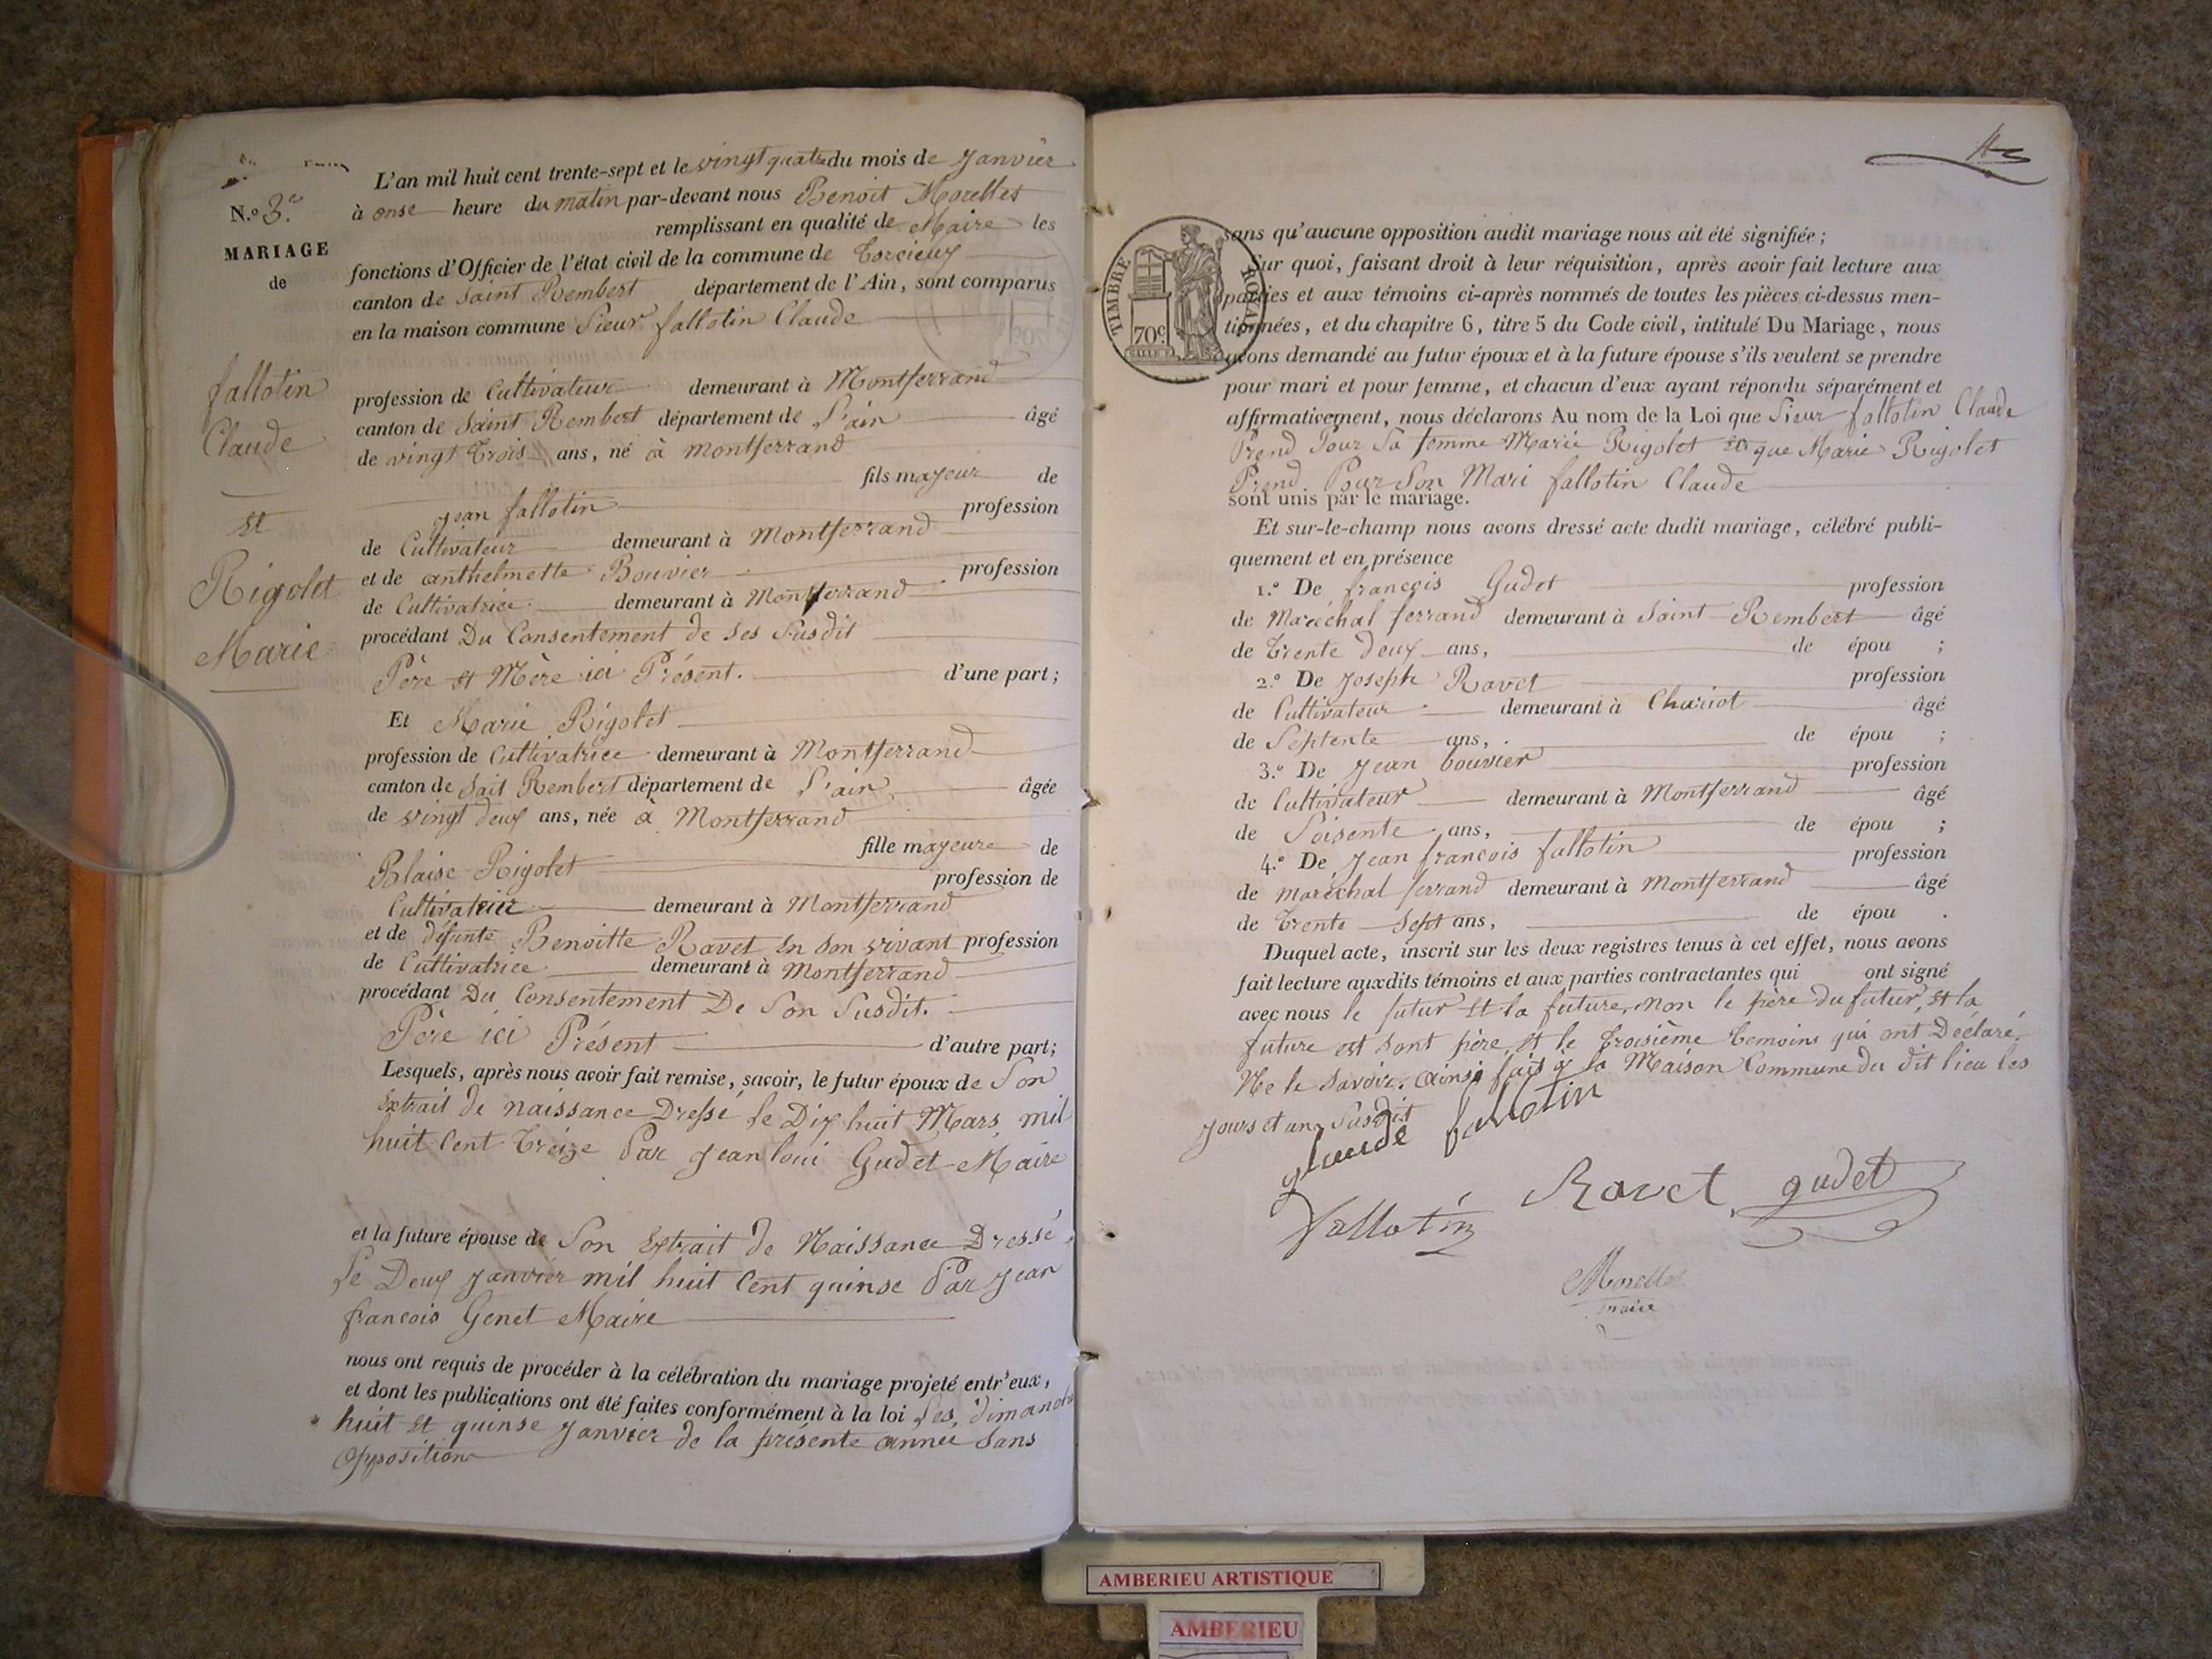 N.o 3.e
MARIAGE
de
fallotin
Claude
et
Rigolet
Marie
L'an mil huit cent trente-sept et le vingt quatre du mois de Janvier
à onse heure du matin par-devant nous Benoit Morellet
remplissant en qualité de Maire les
fonctions d'Officier de l'état civil de la commune de Torcieux
canton de Saint Rembert département de l'Ain, sont comparus
en la maison commune Sieur fallotin Claude
profession de Cultivateur demeurant à Montferrand
canton de Saint Rembert département de L'ain âgé
de vingt Trois ans, né à montferrand
fils majeur de
jean fallotin profession
de Cultivateur demeurant à Montferrand
et de anthelmette Bouvier profession
de Cultivatrice demeurant à Montferrand
procédant Du Consentement de Ses Susdit
Père et Mère ici Présent. d'une part;
Et Marie Rigolet
profession de Cultivatrice demeurant à Montferrand
canton de Sait Rembert département de L'ain âgée
de vingt deux ans, née à Montferrand
fille majeure de
Blaise Rigolet profession de
Cultivateur demeurant à Montferrand
et de défunte Benoitte Ravet En Son vivant profession
de Cultivatrice demeurant à Montferrand
procédant Du Consentement De Son Susdit.
Père ici Présent d'autre part;
Lesquels, après nous avoir fait remise, savoir, le futur époux de Son
Extrait de naissance Dressé Le Dix huit Mars mil
huit Cent Treize Par Jean loui Gudet Maire
et la future épouse de Son Extrait de Naissance Dressé
Le Deux Janvier mil huit Cent quinse Par Jean
francois Genet Maire
nous ont requis de procéder à la célébration du mariage projeté entr'eux,
et dont les publications ont été faites conformément à la loi Les dimanche
huit et quinse Janvier de la présente année Sans
Opposition
TIMBRE ROYAL
70c
sans qu'aucune opposition audit mariage nous ait été signifiée;
Sur quoi, faisant droit à leur réquisition, après avoir fait lecture aux
parties et aux témoins ci-après nommés de toutes les pièces ci-dessus men-
tionnées, et du chapitre 6, titre 5 du Code civil, intitulé Du Mariage, nous
avons demandé au futur époux et à la future épouse s'ils veulent se prendre
pour mari et pour femme, et chacun d'eux ayant répondu séparément et
affirmativement, nous déclarons Au nom de la Loi que Sieur fallotin Claude
Prend Pour Sa femme Marie Rigolet et que Marie Rigolet
Prend Pour Son Mari fallotin Claude
sont unis par le mariage.
Et sur-le-champ nous avons dressé acte dudit mariage, célébré publi-
quement et en présence
1.o De françois Gudet profession
de Maréchal ferrand demeurant à Saint Rembert âgé
de Trente Deux ans, de épou ;
2.o De Joseph Ravet profession
de Cultivateur demeurant à Chariot âgé
de Septente ans, de épou ;
3.o De Jean bouvier profession
de Cultivateur demeurant à Montferrand âgé
de Soisente ans, de épou ;
4.o De Jean francois fallotin profession
de maréchal ferrand demeurant à Montferrand âgé
de Trente Sept ans, de épou .
Duquel acte, inscrit sur les deux registres tenus à cet effet, nous avons
fait lecture auxdits témoins et aux parties contractantes qui ont signé
avec nous le futur et la future, non le père du futur, et la
future est sont père, et le Troisième Temoins qui ont Déclaré
Ne le Savoir. ainsi fais à la Maison Commune du dit lieu les
jours et ans Susdit
glaude fallotin
Vallotin Ravet gudet
Morellet
maire
AMBERIEU ARTISTIQUE
AMBERIEU